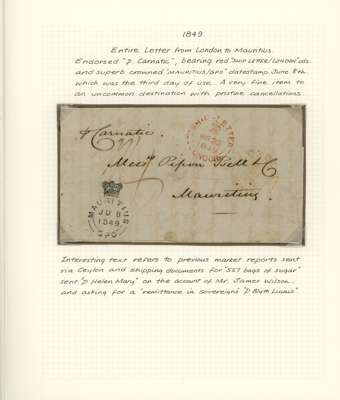 1849.
Entire Letter from London to Mauritius.
Endorsed "P. Carnatic", bearing red "SHIP LETTER/LONDON" cds
and superb crowned "MAURITIUS/GPO" datestamp June 8th
which was the third day of use. A very fine item to
an uncommon destination with pristine cancellations
p Carnatic.
SHIP LETTER
1849
LONDON
Messrs Pipon Bell & Co
Mauritius
MAURITIUS
JU 8
1849
GPO
Interesting text refers to previous market reports sent
via Ceylon and shipping documents for "557 bags of sugar"
sent "P. Helen Mary" on the account of Mr. James Wilson...
and asking for a "remittance in sovereigns "P Blyth